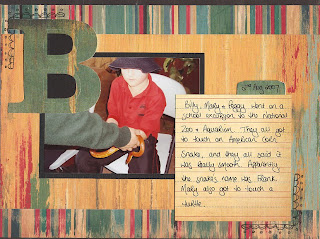 B
2nd Aug 2007
Billy, Mary & Peggy went on a
school excursion to the National
Zoo & Aquarium. They all got
to touch an American Corn
Snake, and they all said it
was really smooth. Apparently
the snake's name was Frank.
Mary also got to touch a
turtle.